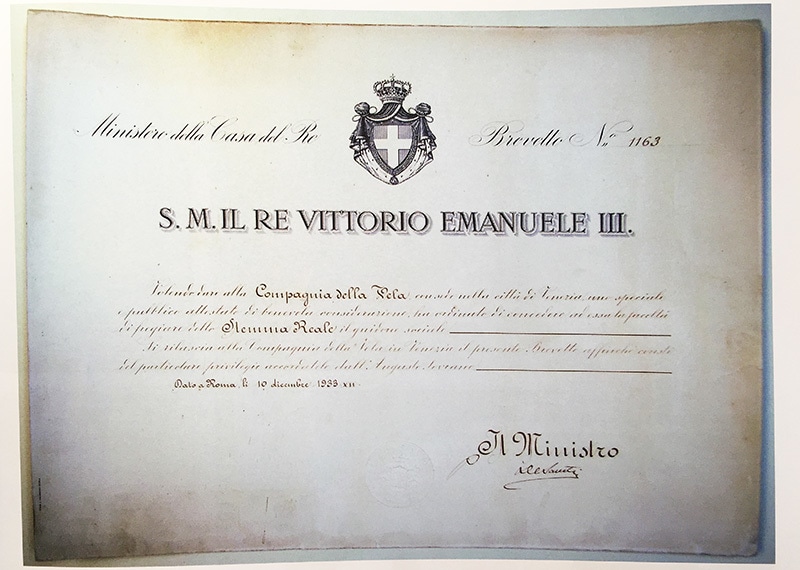 Ministero della Casa del Re
Brevetto N.º 1163
S. M. IL RE VITTORIO EMANUELE III.
Volendo dare alla Compagnia della Vela con sede nella città di Venezia, uno speciale
e pubblico attestato di benevola considerazione, ha ordinato di concedere ad essa la facoltà
di fregiare dello Stemma Reale il guidone sociale
Si rilascia alla Compagnia della Vela in Venezia il presente Brevetto affinché consti
del particolare privilegio accordatole dall' Augusto Sovrano
Dato a Roma, li 10 dicembre 1933 XII
Il Ministro